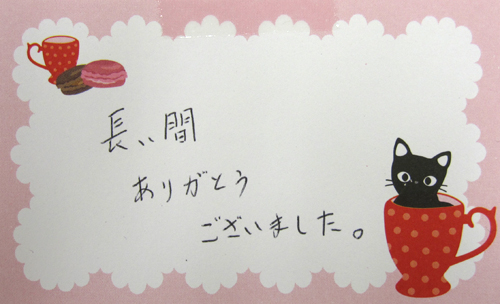 長い間
ありがとう
ございました。